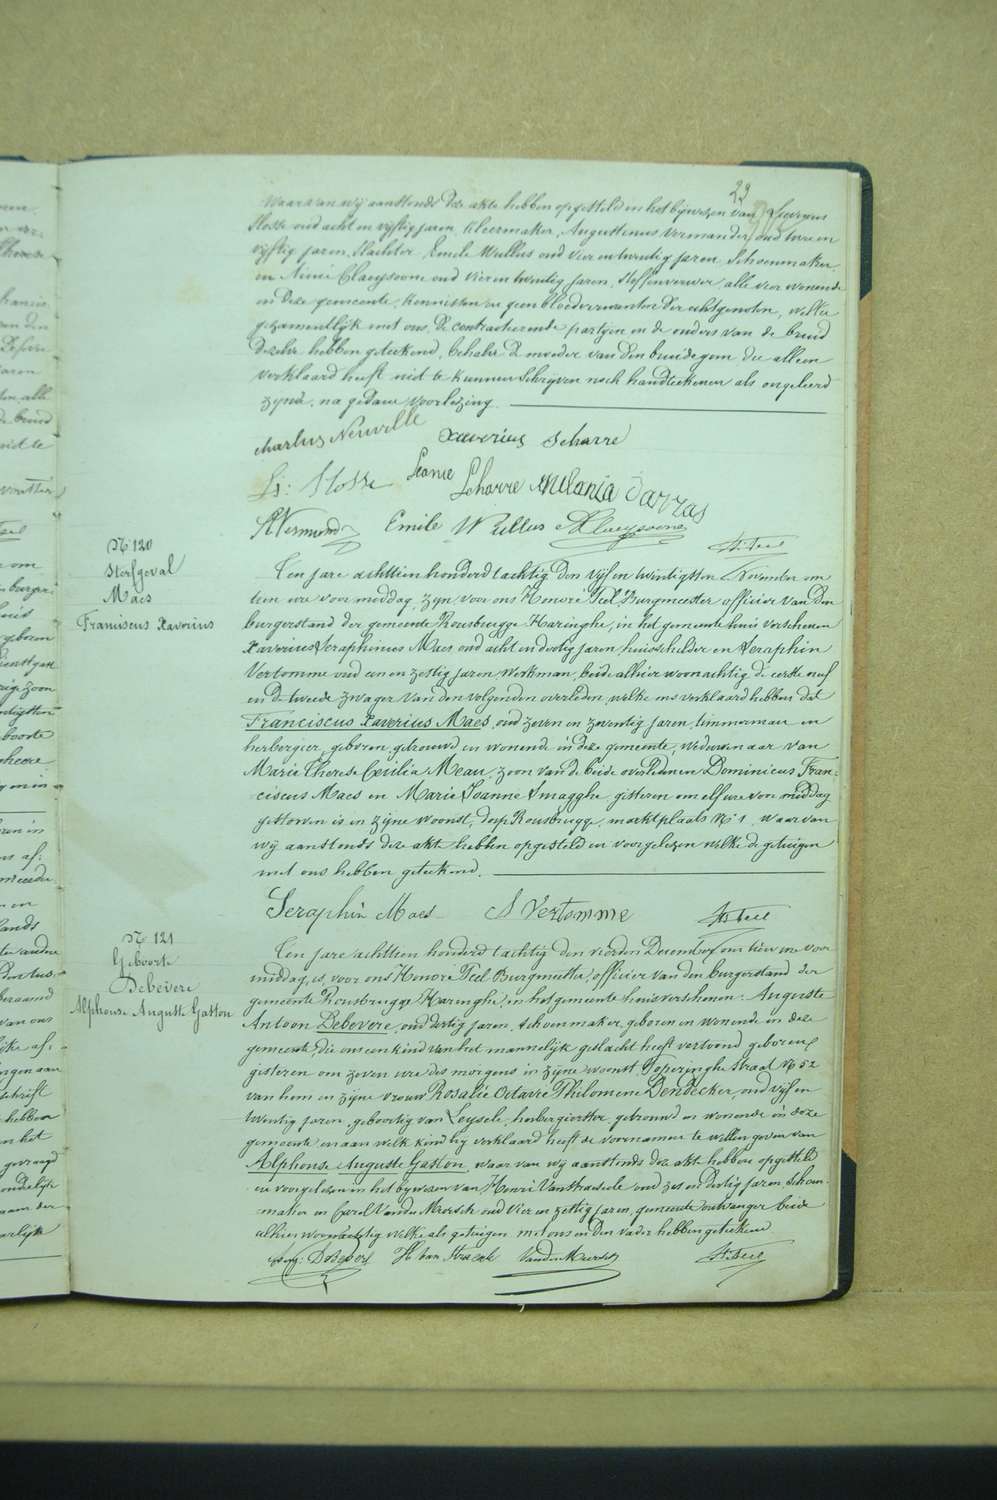 29
Waarvan wij aanstonds deze akte hebben opgesteld in het bijwezen van
Stosse oud acht en vijftig jaren, kleermaker, Augustinus Vermander, oud twee en
vijftig jaren, slachter, Emile Wullus oud vier en twintig jaren, schoenmaker,
en Claeysoone oud vier en twintig jaren, stoffenverwer, alle vier wonende
in deze gemeente, kennissen en geen bloedverwanten der echtgenoten, welke
gezamentlijk met ons, de contracteerende partijen en de ouders van de bruid
dezelve hebben geteekend, behalve de moeder van den bruidegom die alleen
verklaard heeft niet te kunnen schrijven noch handteekenen als ongeleerd
zijnde, na gedane voorlezing.
charlus Neuville Xaverius Scharre
Stosse Leonie Scharre Melania Darras
Vermander Emile Wullus A Claeysoone
N° 120
Sterfgeval
Maes
Franciscus Xaverius
Ten jare achttien honderd tachtig den vijf en twintigsten November om
tien ure voor middag, zijn voor ons Honoré Feel Burgmeester officier van den
burgerstand der gemeente Rousbrugge Haringhe, in het gemeente huis verschenen
Xaverius Seraphinus Maes oud acht en dertig jaren, huisschilder en Seraphin
Vertomme oud een en zestig jaren, werkman, beide alhier woonachtig de eerste neef
en de tweede zwager van den volgenden overleden, welke ons verklaard hebben dat
Franciscus Xaverius Maes, oud zeven en zeventig jaren, timmerman en
herbergier, geboren, getrouwd en wonende in deze gemeente, weduwenaar van
Marie Therese Cecilia Meau, zoon van de beide overledenen Dominicus Fran-
ciscus Maes en Marie Joanne Smagghe, gisteren om elf ure voor middag
gestorven is in zijne woonst, dorp Rousbrugge, marktplaats N° 1. Waarvan
wij aanstonds deze akt hebben opgesteld en voorgelezen welke de getuigen
met ons hebben geteekend.
Seraphin Maes S Vertomme
N° 121
Geboorte
Debevere
Alphonse Auguste Gaston
Ten jare achttien honderd tachtig den vierden December om tien ure voor
middag, is voor ons Honoré Feel Burgmeester, officier van den burgerstand der
gemeente Rousbrugge Haringhe, in het gemeente huis verschenen. Auguste
Antoon Debevere, oud dertig jaren, schoenmaker, geboren en wonende in deze
gemeente, die ons een kind van het mannelijk geslacht heeft vertoond geboren
gisteren om zeven ure des morgens in zijne woonst Poperinghe straat N° 52
van hem en zijne vrouw Rosalie Octavie Philomene Dendecker, oud vijf en
twintig jaren, geboortig van Leysele, herbergierster, getrouwd en wonende in deze
gemeente en aan welk kind hij verklaard heeft de voornamen te willen geven van
Alphonse Auguste Gaston, waar van wij aanstonds deze akt hebben opgesteld
en voorgelezen in het bijwezen van Henri Vanthaecke oud zes en dertig jaren schoen-
maker en Carel Vander Meersch oud vier en zestig jaren, gemeente ontvanger beide
alhier woonachtig welke als getuigen met ons en den vader hebben geteekend
Debevere